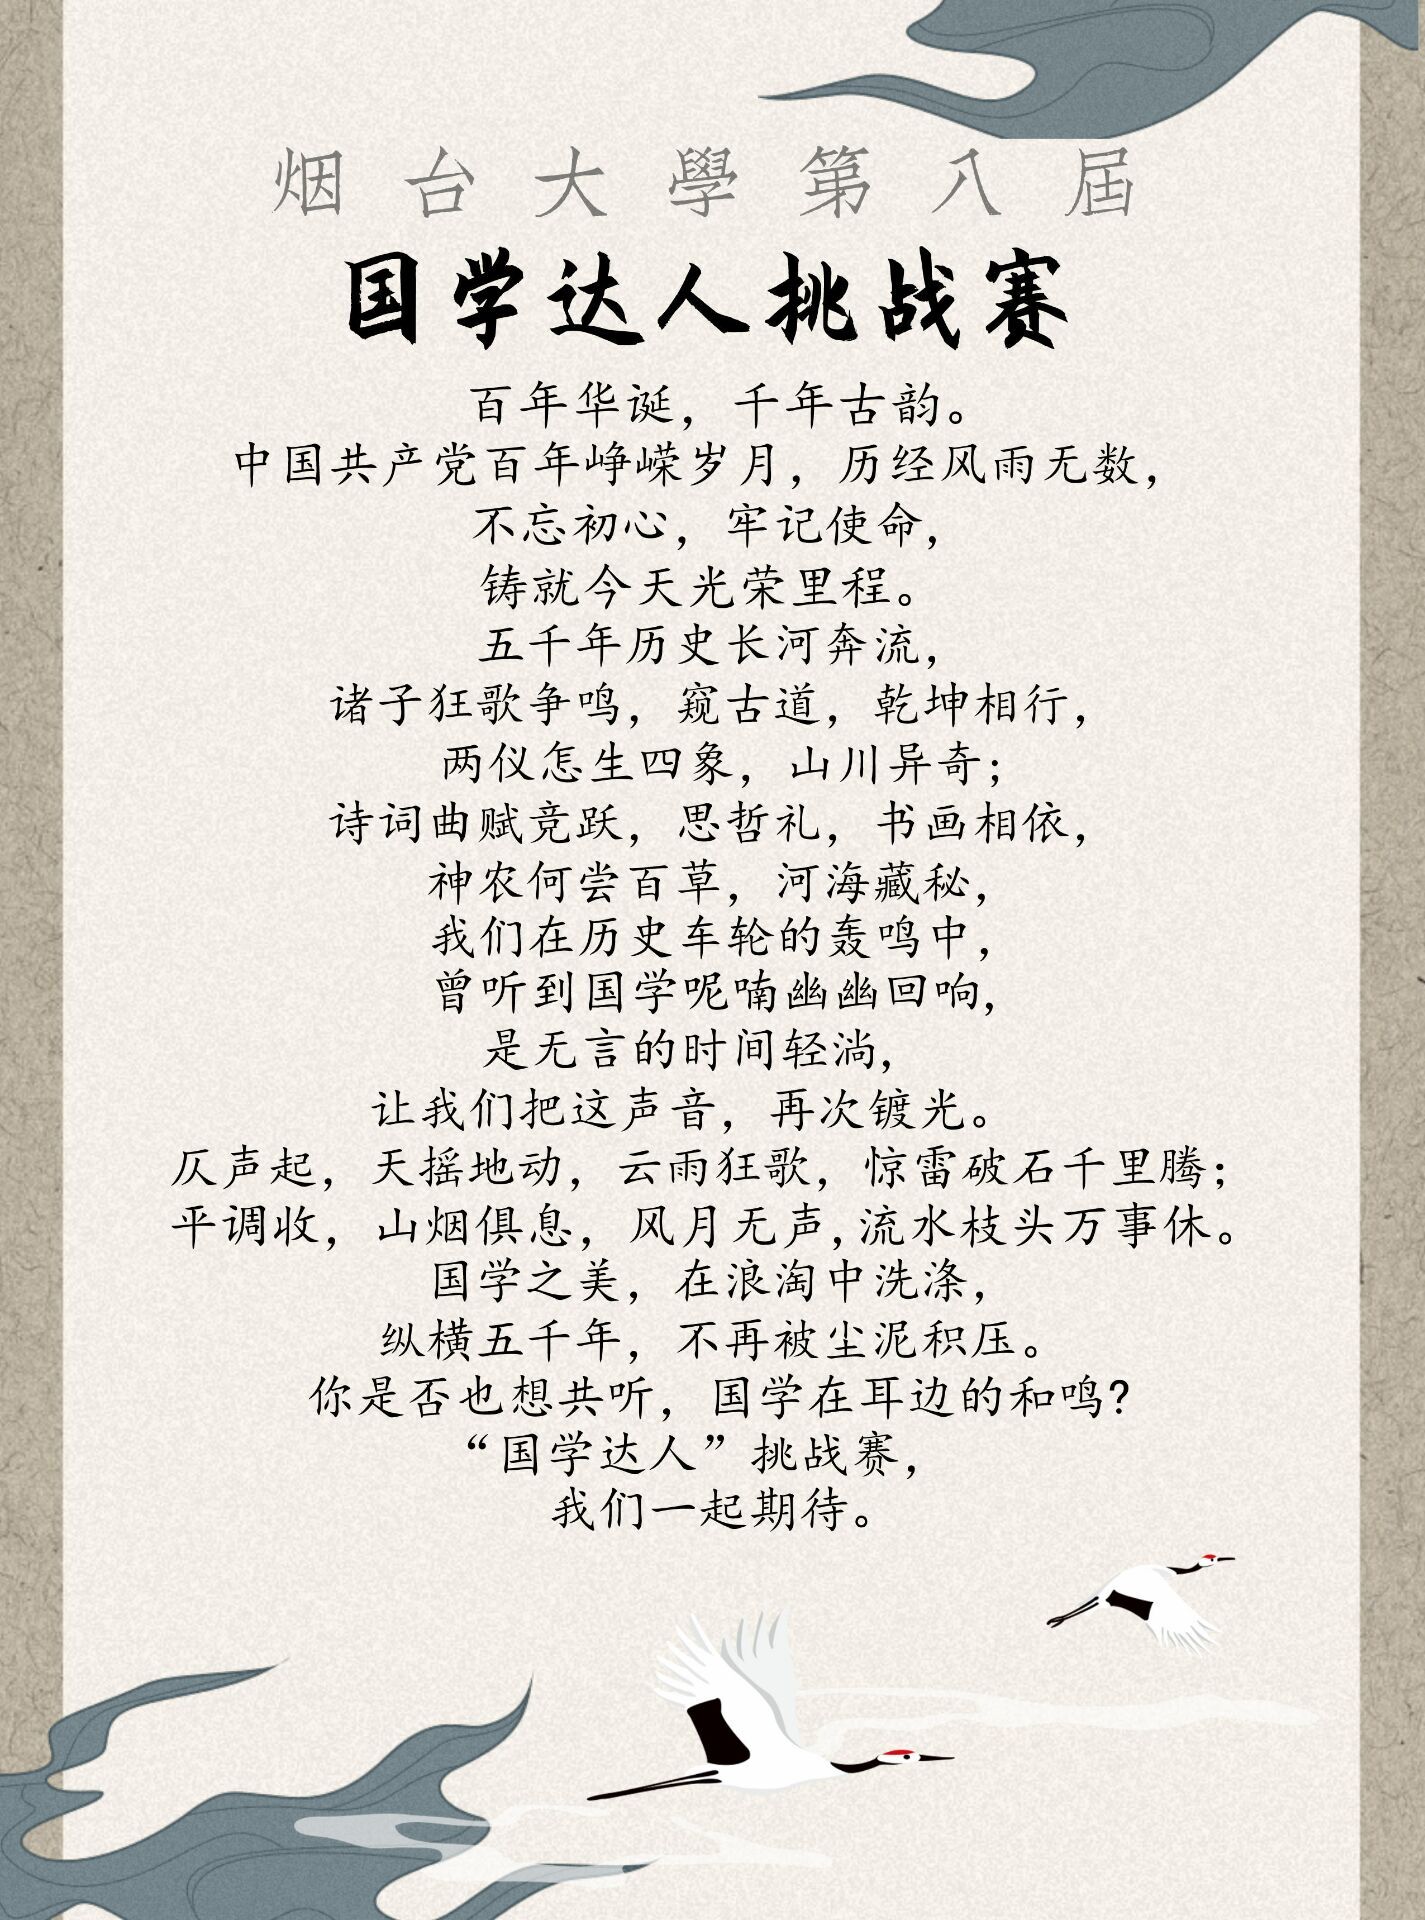 烟台大學第八屆
国学达人挑战赛
百年华诞，千年古韵。
中国共产党百年峥嵘岁月，历经风雨无数，
不忘初心，牢记使命，
铸就今天光荣里程。
五千年历史长河奔流，
诸子狂歌争鸣，窥古道，乾坤相行，
两仪怎生四象，山川异奇；
诗词曲赋竞跃，思哲礼，书画相依，
神农何尝百草，河海藏秘，
我们在历史车轮的轰鸣中，
曾听到国学呢喃幽幽回响，
是无言的时间轻淌，
让我们把这声音，再次镀光。
仄声起，天摇地动，云雨狂歌，惊雷破石千里腾；
平调收，山烟俱息，风月无声,流水枝头万事休。
国学之美，在浪淘中洗涤，
纵横五千年，不再被尘泥积压。
你是否也想共听，国学在耳边的和鸣?
“国学达人”挑战赛，
我们一起期待。